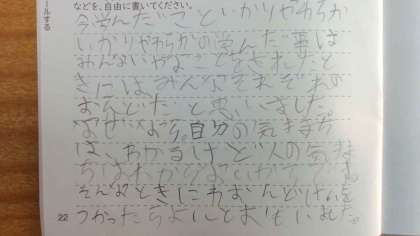 ールする
などを、自由に書いてください。
今学んだことといかりやわらか
いかりやわらかの学んだ事は
みんないやなことをされたと
きには、みんなそれぞれの
おんどだと思いました
なぜなら、自分の気持ち
は、わかるけど人の気持
ちはわからないからです。
そんなときにおんどけいを
つかったらよいとおもいました。
22